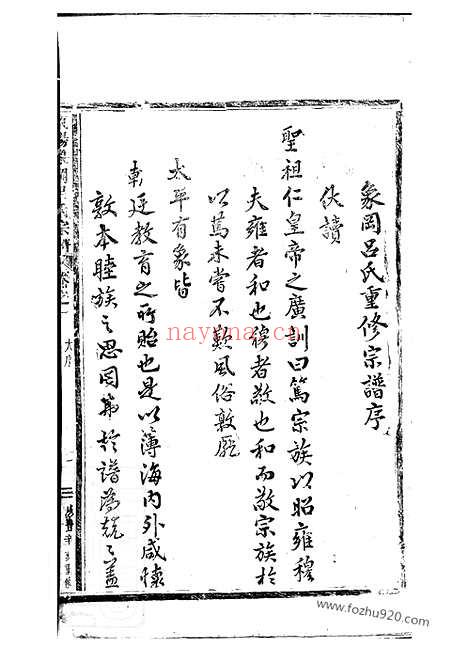 象岡呂氏重修宗譜序
伏讀
聖祖仁皇帝之廣訓曰篤宗族以昭雍穆
夫雍者和也穆者敬也和而敬宗族於
以篤未嘗不歎風俗敦厖
太平有象皆
朝廷教育之所貽也是以薄海內外咸懷
敦本睦族之思罔弗於譜為兢〻蓋
大序
nayona.cn
www.fozhu920.com